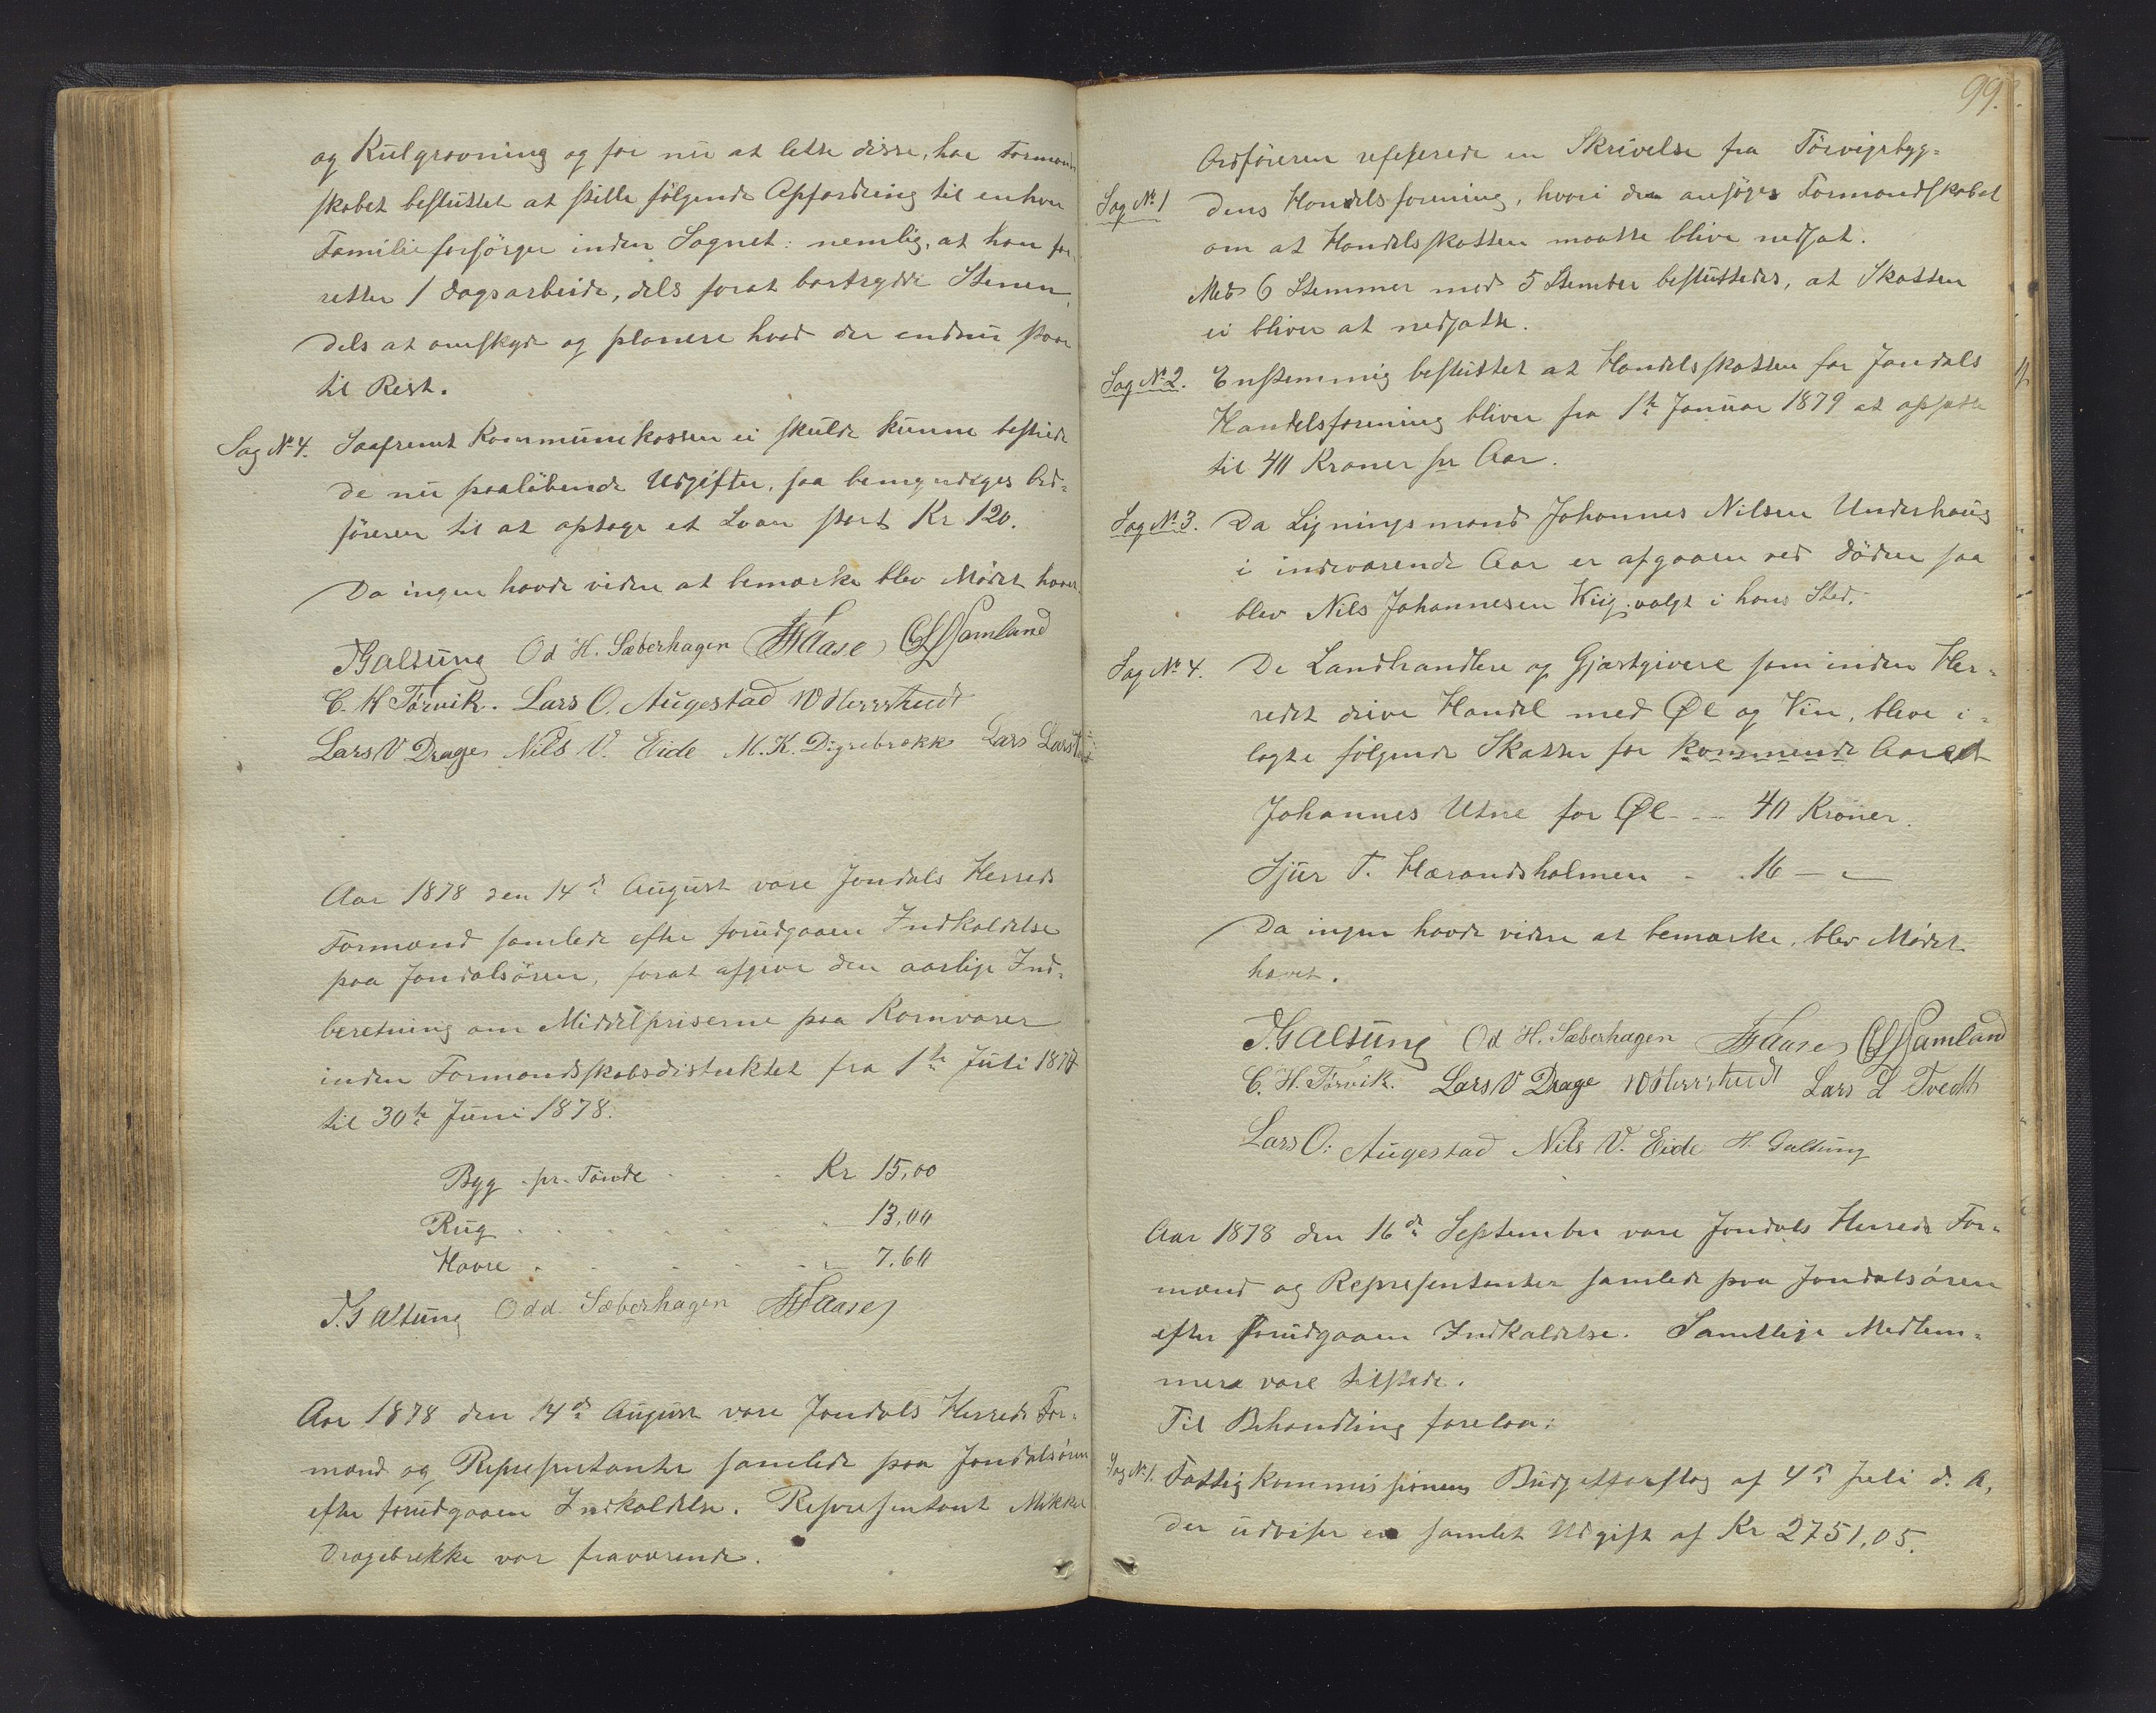 og Kulgrovning og for nu at lette disse, har Formand
skabet besluttet at stille følgende Opfordring til enhver
Familieforsørger inden Sognet: nemlig, at han for
retter 1 Dagsarbeide, dels forat bortrydde Stenen,
dels at omskyde og planere hvad der endnu staar
til Rest.
Sag No 4. Saafremt Kommunekassen ei skulde kunne bestride
de nu paaløbende Udgifter, saa bemyndiges Ord-
føreren til at optage et Laan stort Kr 120.
Da ingen havde videre at bemærke blev Mødet hævet
T. Galtung Od H. Sæberhagen Aase Samland
C. H Tørvik. Lars O. Augestad W Herrstudt
Lars V Drage Nils V. Eide M. K. Digrebrekk Lars Lars
Aar 1878 den 14de August vare Jondals Herreds
Formænd samlede efter forudgaaen Indkaldelse
paa Jondalsøren, forat afgive den aarlige Ind-
beretning om Middelpriserne paa Kornvarer
inden Formandskabsdistriktet fra 1te Juli 1877
til 30te Juni 1878.
Byg pr. Tønde Kr 15,00
Rug 13,00
Havre 7.60
T. Galtung Odd. Sæberhagen Aase
Aar 1878 den 14de August vare Jondals Herreds For-
mænd og Repræsentanter samlede paa Jondalsøren
efter forudgaaen Indkaldelse. Repræsentant Mikkel
Dragebrekke var fraværende.
99.
Ordføreren refererede en Skrivelse fra Tørvigbyg-
Sag No 1 dens Handelsforening, hvori den ansøger Formandskabet
om at Handelsskatten maatte blive nedsat.
Med 6 Stemmer mod 5 Stemmer besluttedes, at Skatten
ei bliver at nedsætte.
Sag No 2. Enstemmig besluttet at Handelsskatten for Jondals
Handelsforening bliver fra 1te Januar 1879 at opsætte
til 40 Kroner pr Aar.
Sag No 3. Da Ligningsmand Johannes Nilsen Underhaug
i indeværende Aar er afgaaen ved Døden saa
blev Nils Johannesen Wiig valgt i hans Sted.
Sag No 4. De Landhandlere og Gjæstgivere som inden Her-
redet drive Handel med Øl og Vin, bleve i-
lagte følgende Skatter for kommende Aaret
Johannes Utne for Øl --- 40 Kroner.
Sjur T. Hærandsholmen - . 16 — "
Da ingen havde videre at bemærke, blev Mødet
hævet.
T. Galtung Od H. Sæberhagen Aase Samland
C. H. Tørvik. Lars V Drage W Herrstudt Lars L Tvedt
Lars O: Augestad Nils V. Eide H. Galtung
Aar 1878 den 16de September vare Jondals Herreds For-
mænd og Repræsentanter samlede paa Jondalsøren
efter forudgaaen Indkaldelse. Samtlige Medlem-
mere vare tilstede.
Til Behandling forelaa:
Sag No 1. Fattigkommissionens Budgetforslag af 4de Juli d. A,
der udviser en samlet Udgift af Kr 2751,05.